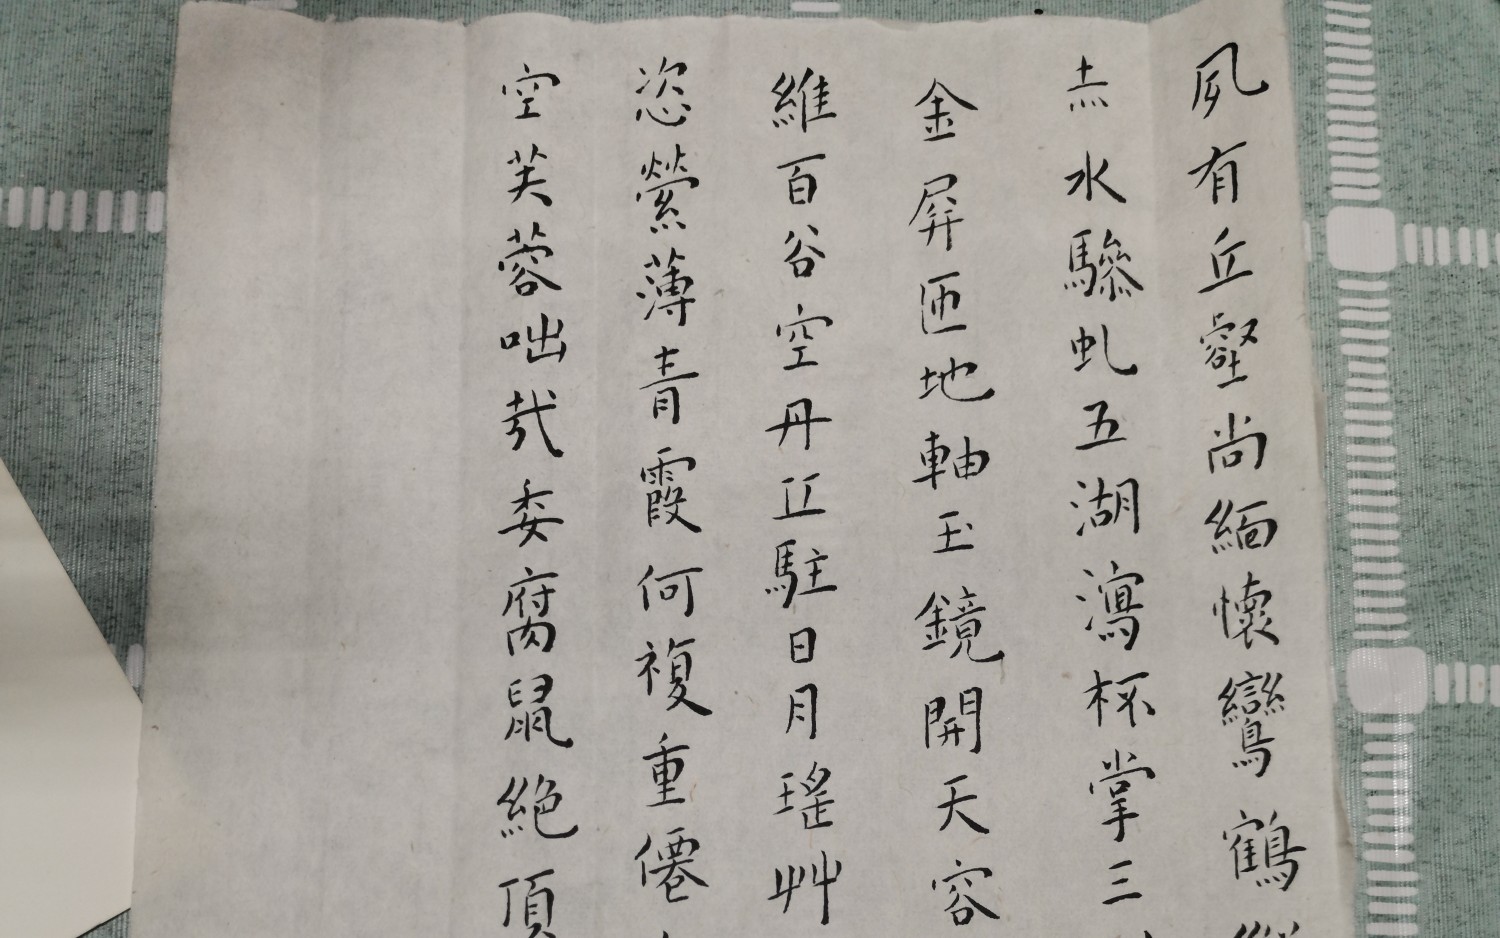 夙有丘壑尚緬懷鸞鶴
赤水驂虬五湖瀉杯掌三
金屏匝地軸玉鏡開天容
維百谷空丹丘駐日月瑤艸
恣縈薄青霞何複重僊
空芙蓉咄哉委腐鼠絶頂